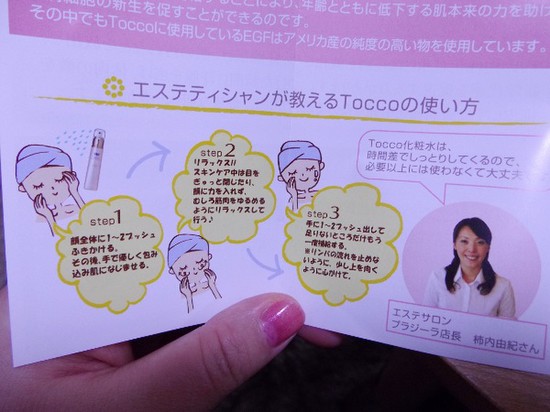 細胞の新生を促すことができるのです。
ることにより、年齢とともに低下する肌本来の力を助け
その中でもToccoに使用しているEGFはアメリカ産の純度の高い物を使用しています。
エステティシャンが教えるToccoの使い方
step1
顔全体に1〜2プッシュ
ふきかける。
その後、手で優しく包み
込み肌になじませる。
step2
リラックス!!
スキンケア中は目を
ぎゅっと閉じたり、
顔に力を入れず、
むしろ筋肉をゆるめる
ようにリラックスして
行う♪
step3
手に1〜2プッシュ出して
足りないところだけもう
一度補給する。
※リンパの流れを止めな
いように、少し上を向く
ように心がけて。
Tocco化粧水は、
時間差でしっとりしてくるので、
必要以上には使わなくて大丈夫
エステサロン
ブラジーラ店長 柿内由紀さん